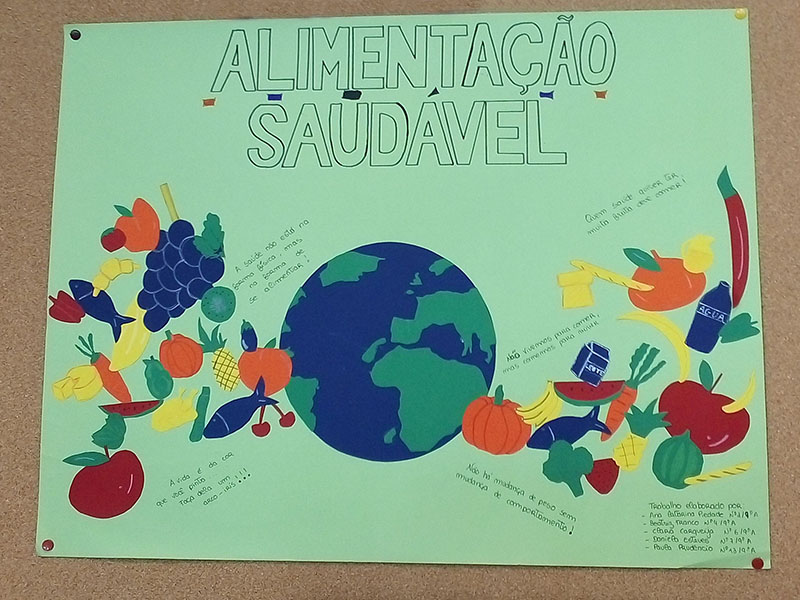 ALIMENTAÇÃO
SAUDÁVEL
Quem saúde quiser ter,
muita fruta deve comer!
A saúde não está na
forma física, mas
na forma de
se alimentar!
ÁGUA
Não vivemos para comer,
mas comemos para viver
LEITE
A vida é da cor
que você pinta
faça dela um
arco-íris!!!
Não há mudança de peso sem
mudança de comportamento!
Trabalho elaborado por
- Ana Catarina Piedade Nº1/9ºA
- Beatriz Franco Nº4/9ºA
- Clara Carqueija Nº6/9ºA
- Daniela Esteves Nº7/9ºA
- Paula Prudêncio Nº13/9ºA